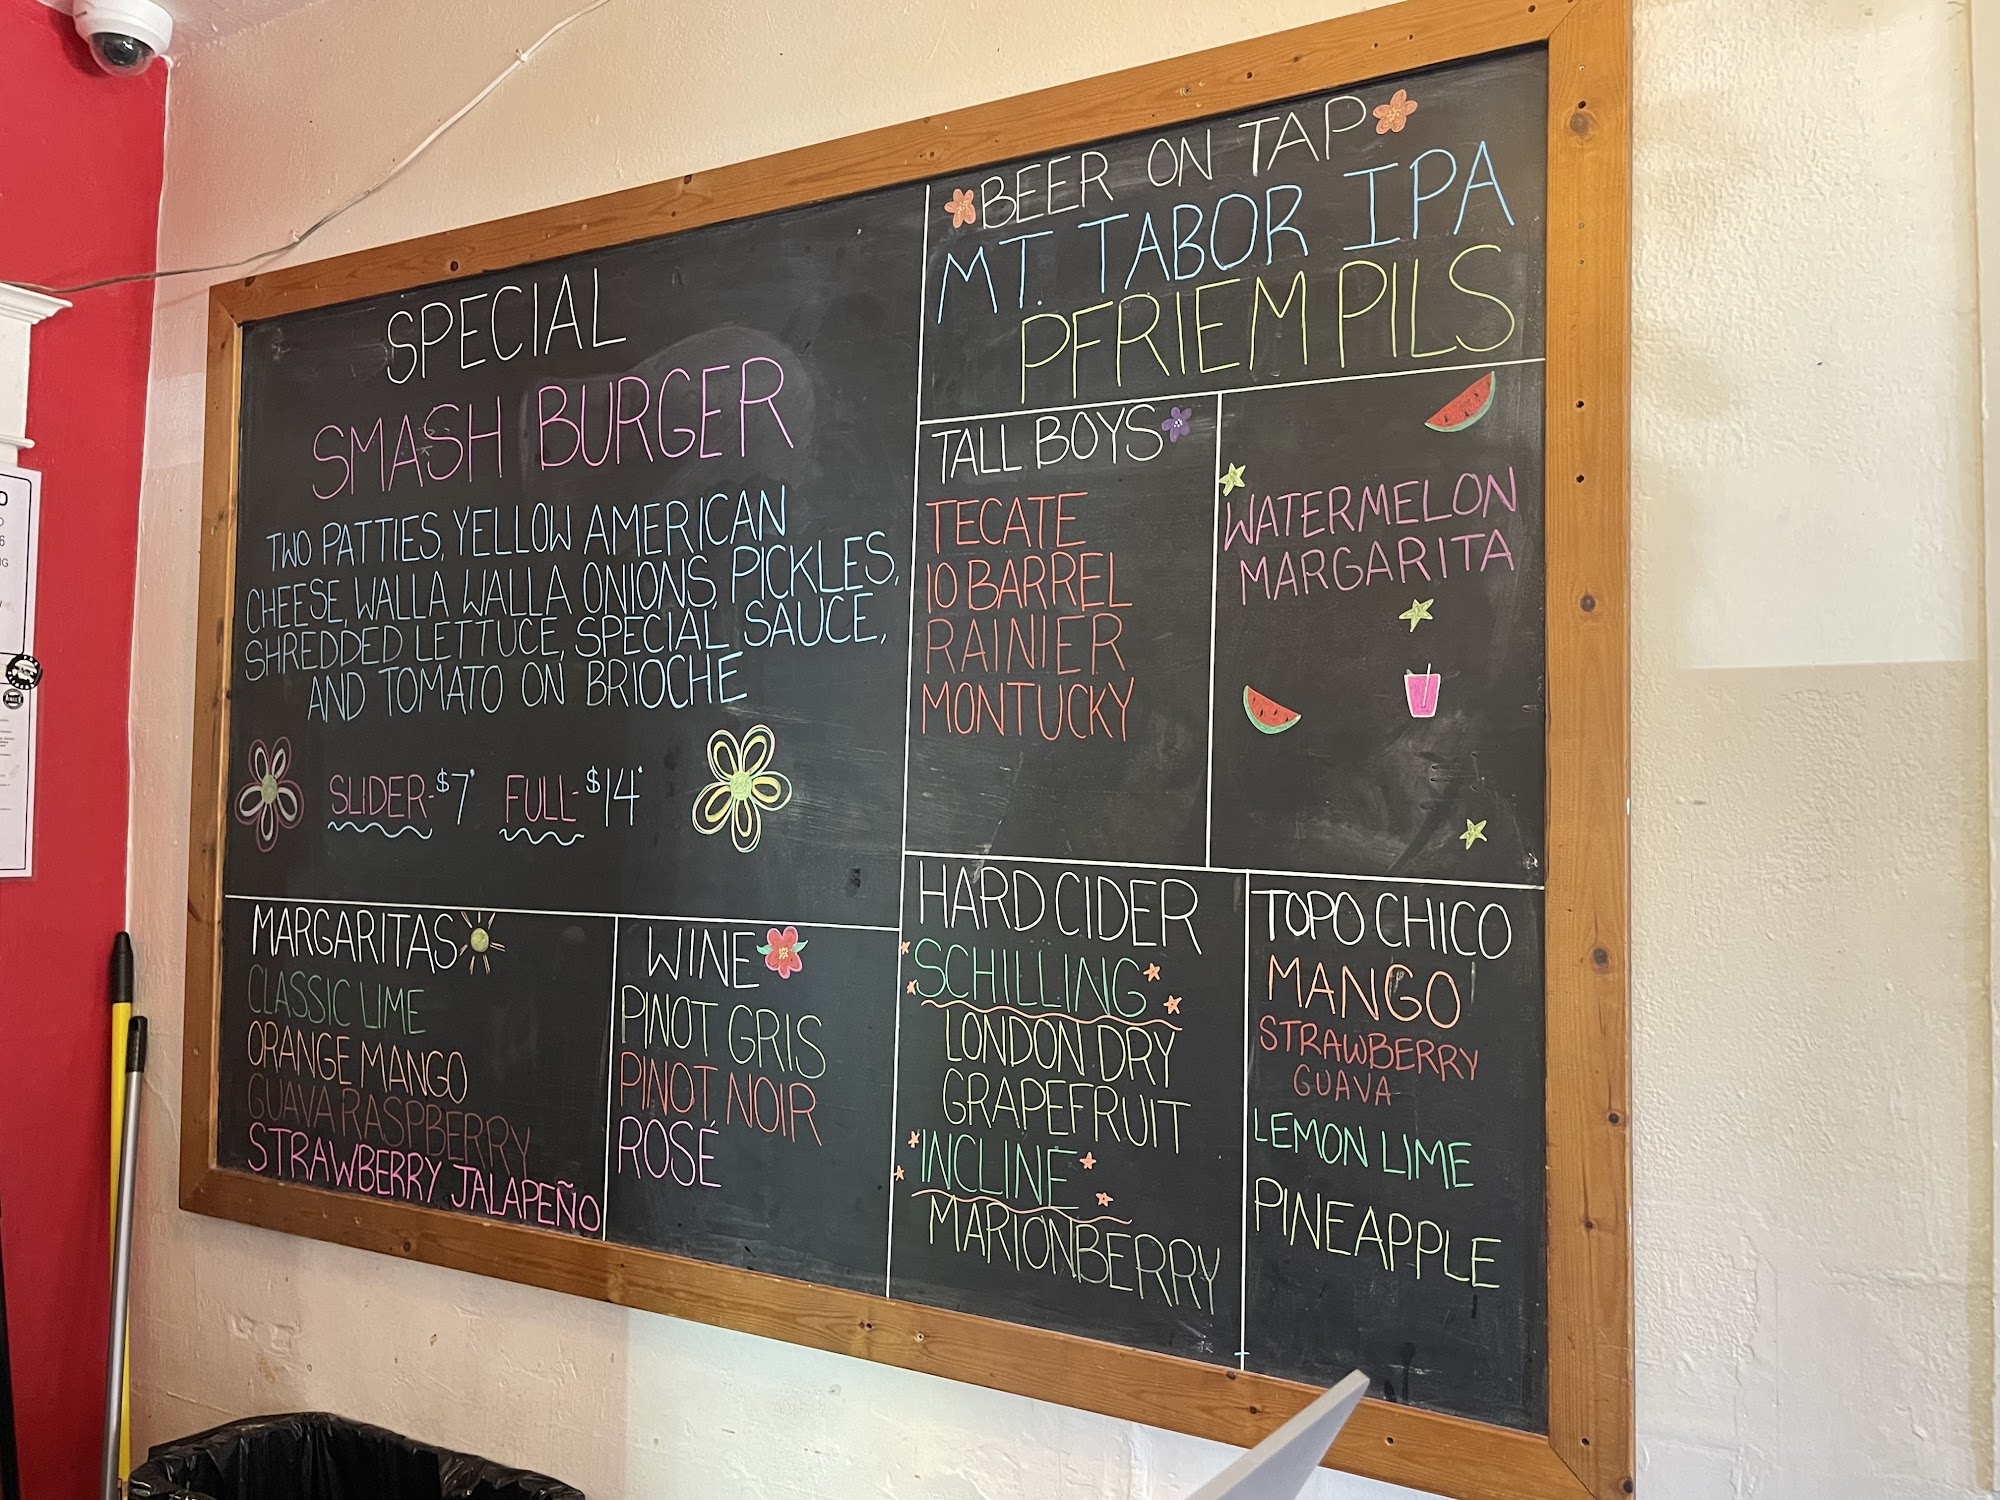 SPECIAL
SMASH BURGER
TWO PATTIES, YELLOW AMERICAN
CHEESE, WALLA WALLA ONIONS, PICKLES,
SHREDDED LETTUCE, SPECIAL SAUCE,
AND TOMATO ON BRIOCHE
SLIDER-$7 FULL-$14
BEER ON TAP
MT. TABOR IPA
PFRIEM PILS
TALL BOYS
TECATE
10 BARREL
RAINIER
MONTUCKY
WATERMELON
MARGARITA
MARGARITAS
CLASSIC LIME
ORANGE MANGO
GUAVA RASPBERRY
STRAWBERRY JALAPEÑO
WINE
PINOT GRIS
PINOT NOIR
ROSÉ
HARD CIDER
SCHILLING
LONDON DRY
GRAPEFRUIT
INCLINE
MARIONBERRY
TOPO CHICO
MANGO
STRAWBERRY
GUAVA
LEMON LIME
PINEAPPLE